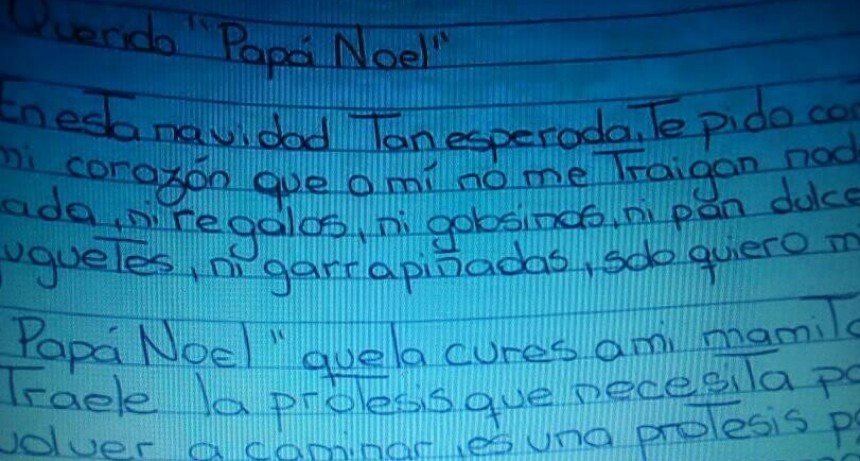 Querido "Papá Noel"
En esta navidad Tan esperada, Te pido
mi corazón que a mí no me Traigan
ni regalos, ni golosinas, ni pan dulce
ni garrapiñadas, solo quiero
Papá Noel" que la cures a mi
Traele la protesis que necesita
volver a caminar, es una protesis